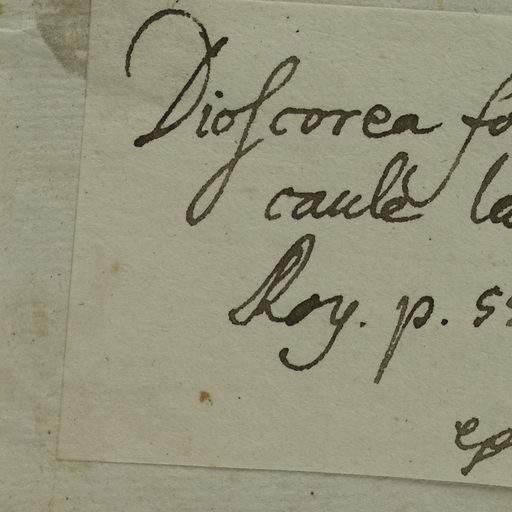 Dioſcorea fo
caulè la
Roy. p. 5